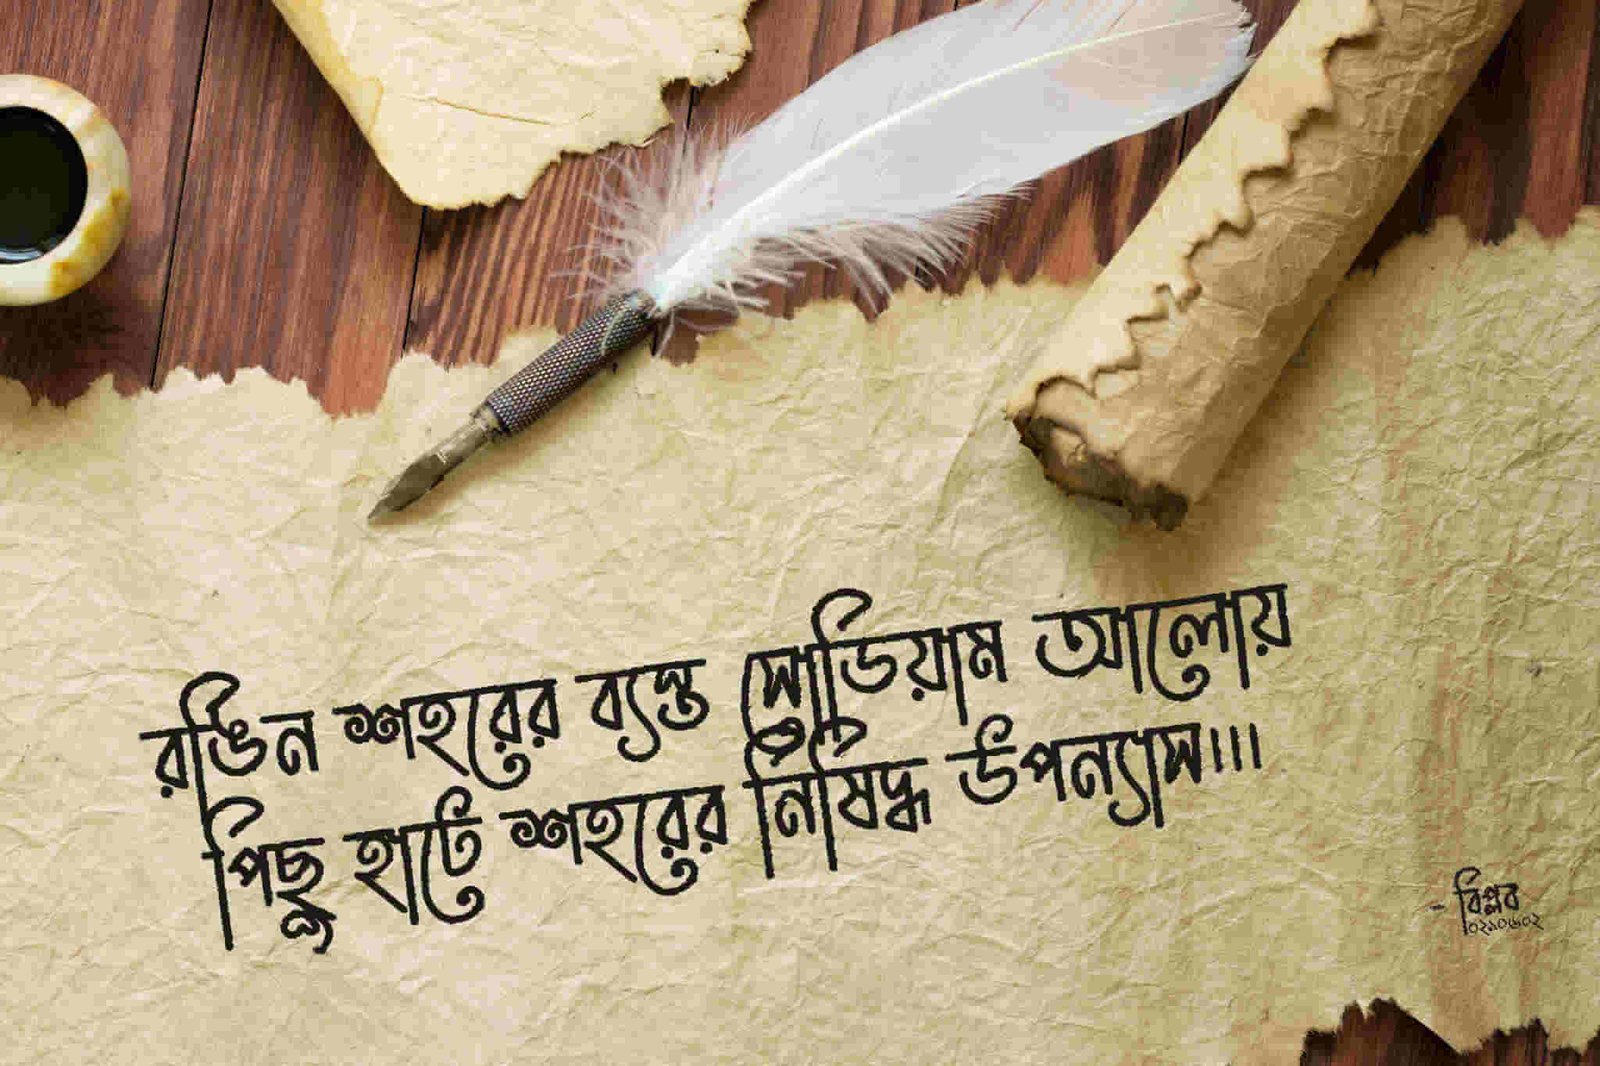 রঙিন শহরের ব্যস্ত সোডিয়াম আলোয়
পিছু হাটে শহরের নিষিদ্ধ উপন্যাস।।।
- বিপ্লব